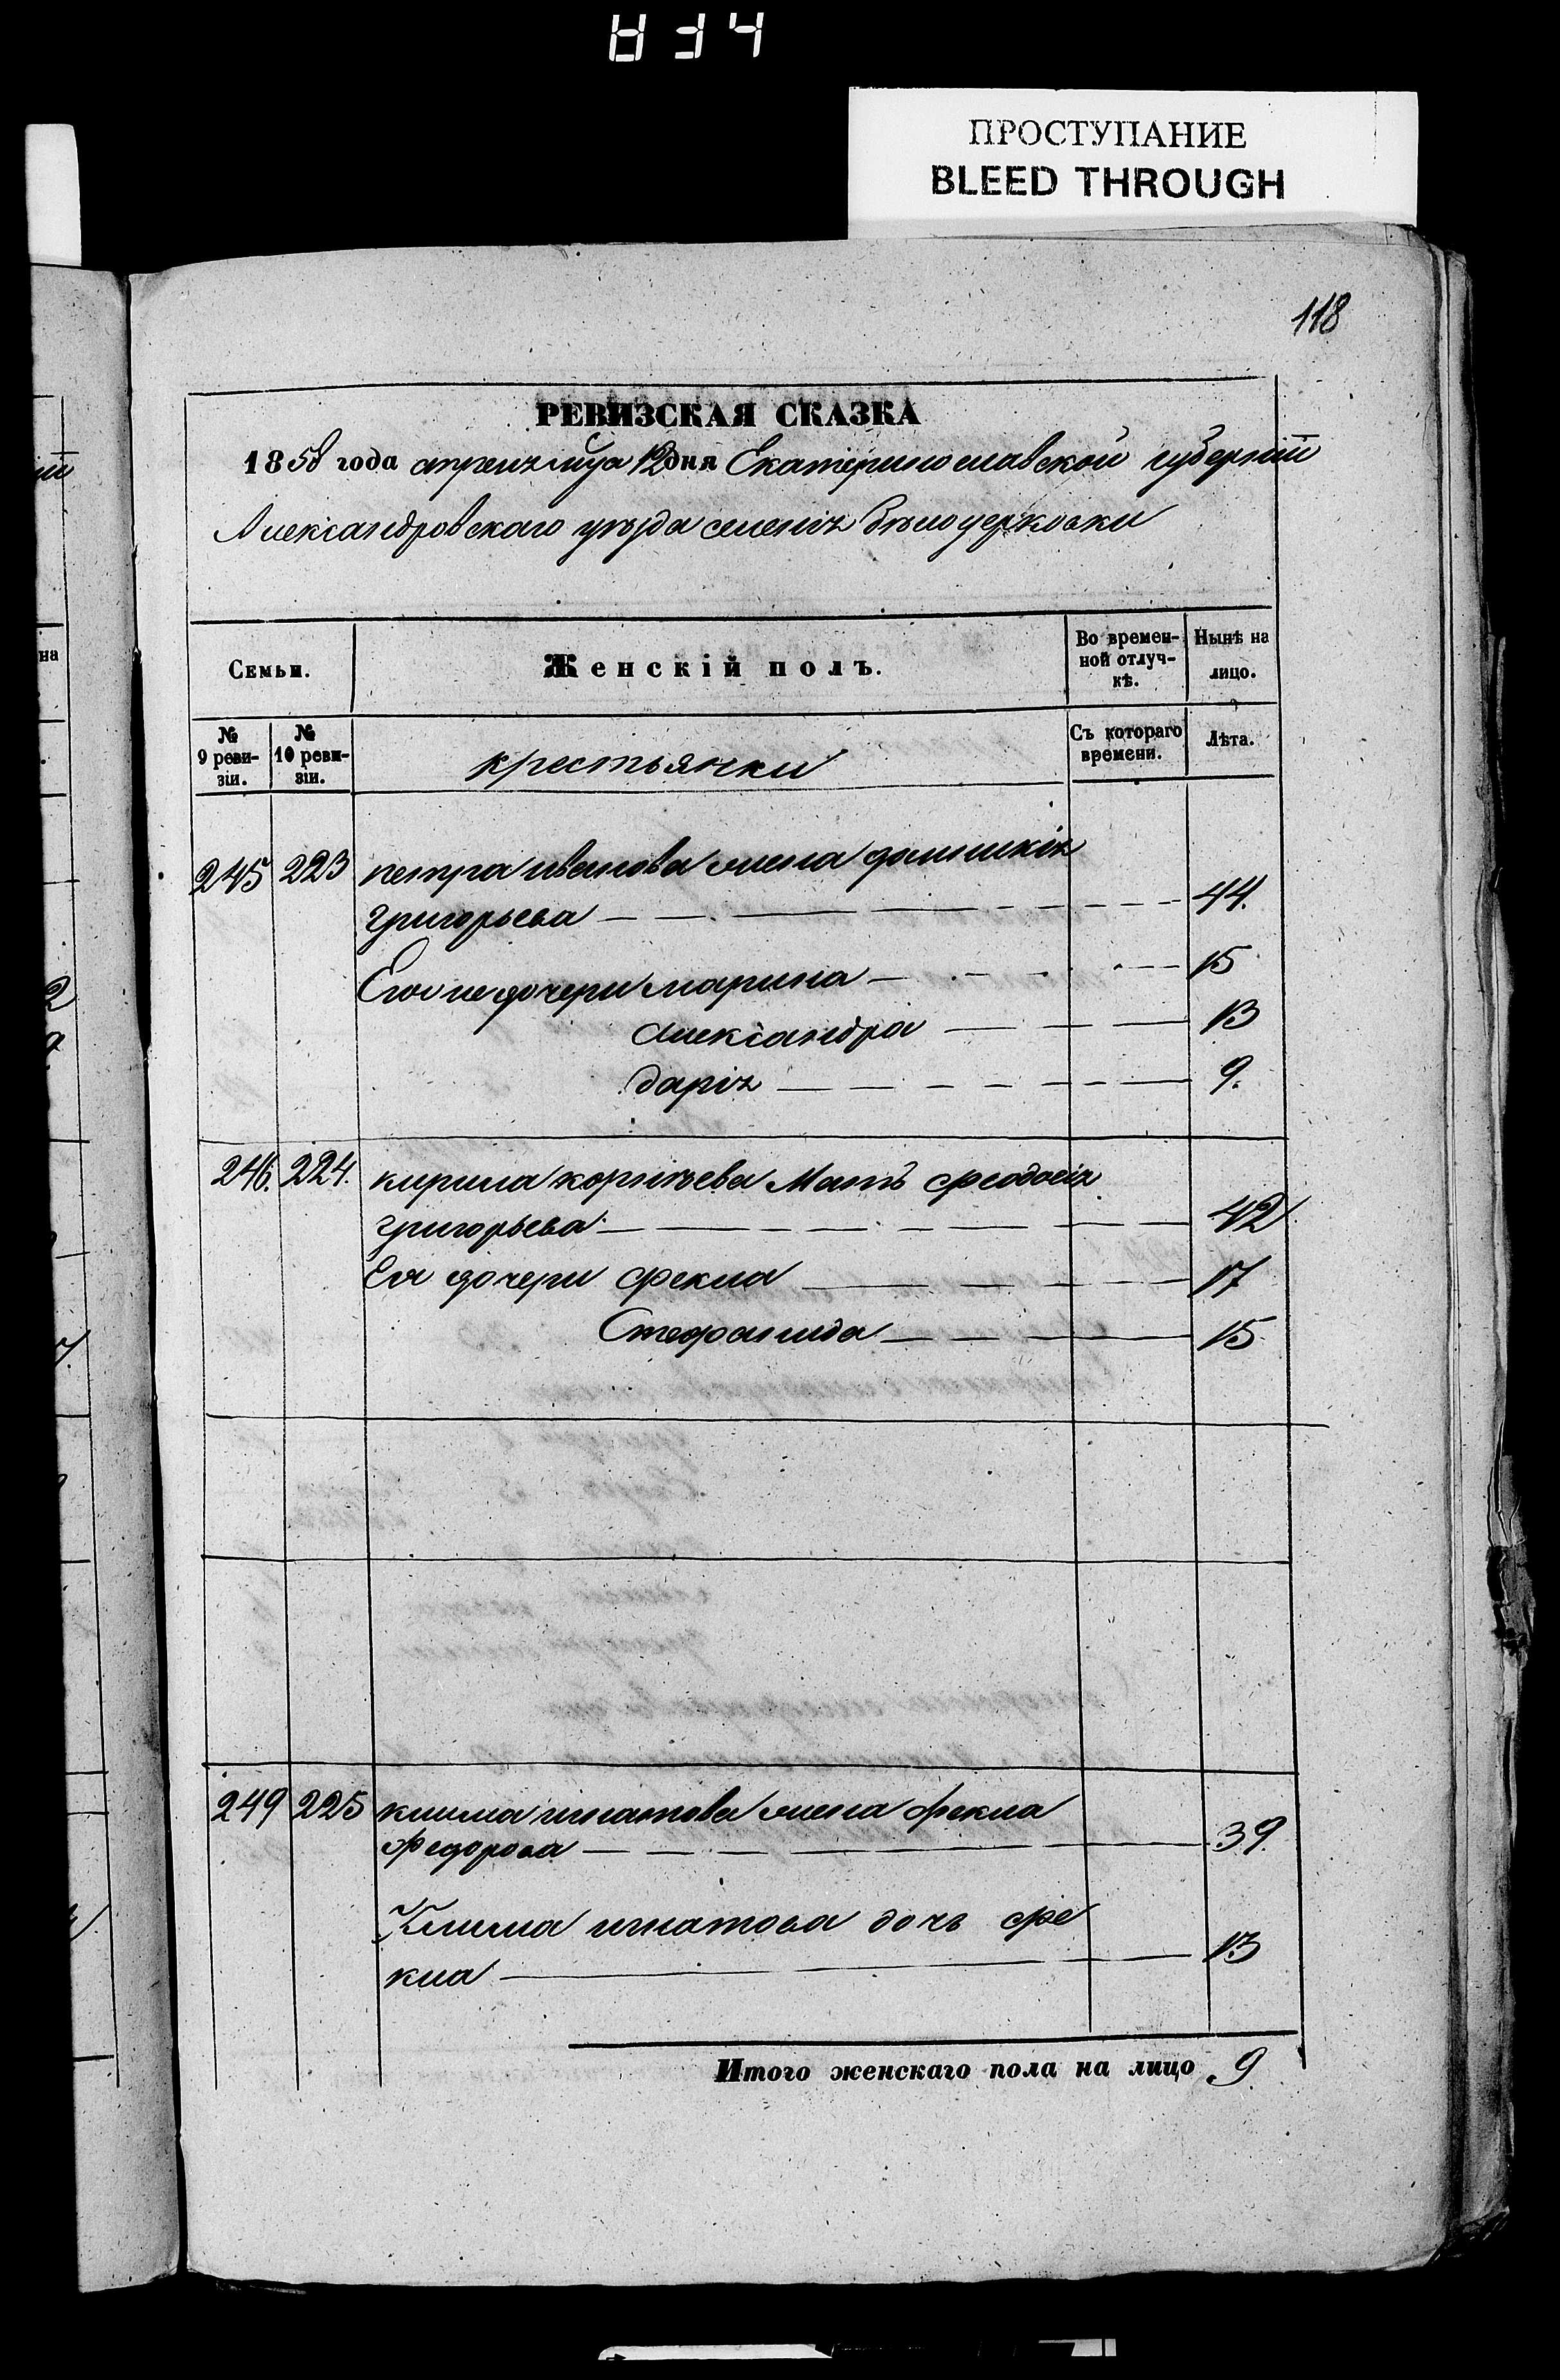 ПРОСТУПАНИЕ
BLEED THROUGH
118
РЕВИЗСКАЯ СКАЗКА
1858 года апреля мца 12 дня Екатеринославской губерніи
Александровскаго уѣзда селенія бѣлоцерковки
Семьи. Женскій полъ. Во времен- Нынѣ на
ной отлуч- лицо.
кѣ.
№ № Съ котораго Лѣта.
9 реви- 10 реви- времени.
зіи. зіи. крестьянки
245 223 петра иванова жена домникія
григорьева 44.
Его же дочери марина 15
Александра 13
дарія 9.
246. 224. кирила корнѣева Мать феодосія
григорьева 42
Ея дочери фекла 17
Стефанида 15
249 225 клима игнатова жена фекла
федорова 39.
Клима игнатова дочь фе
кла 13
Итого женскаго пола на лицо 9.